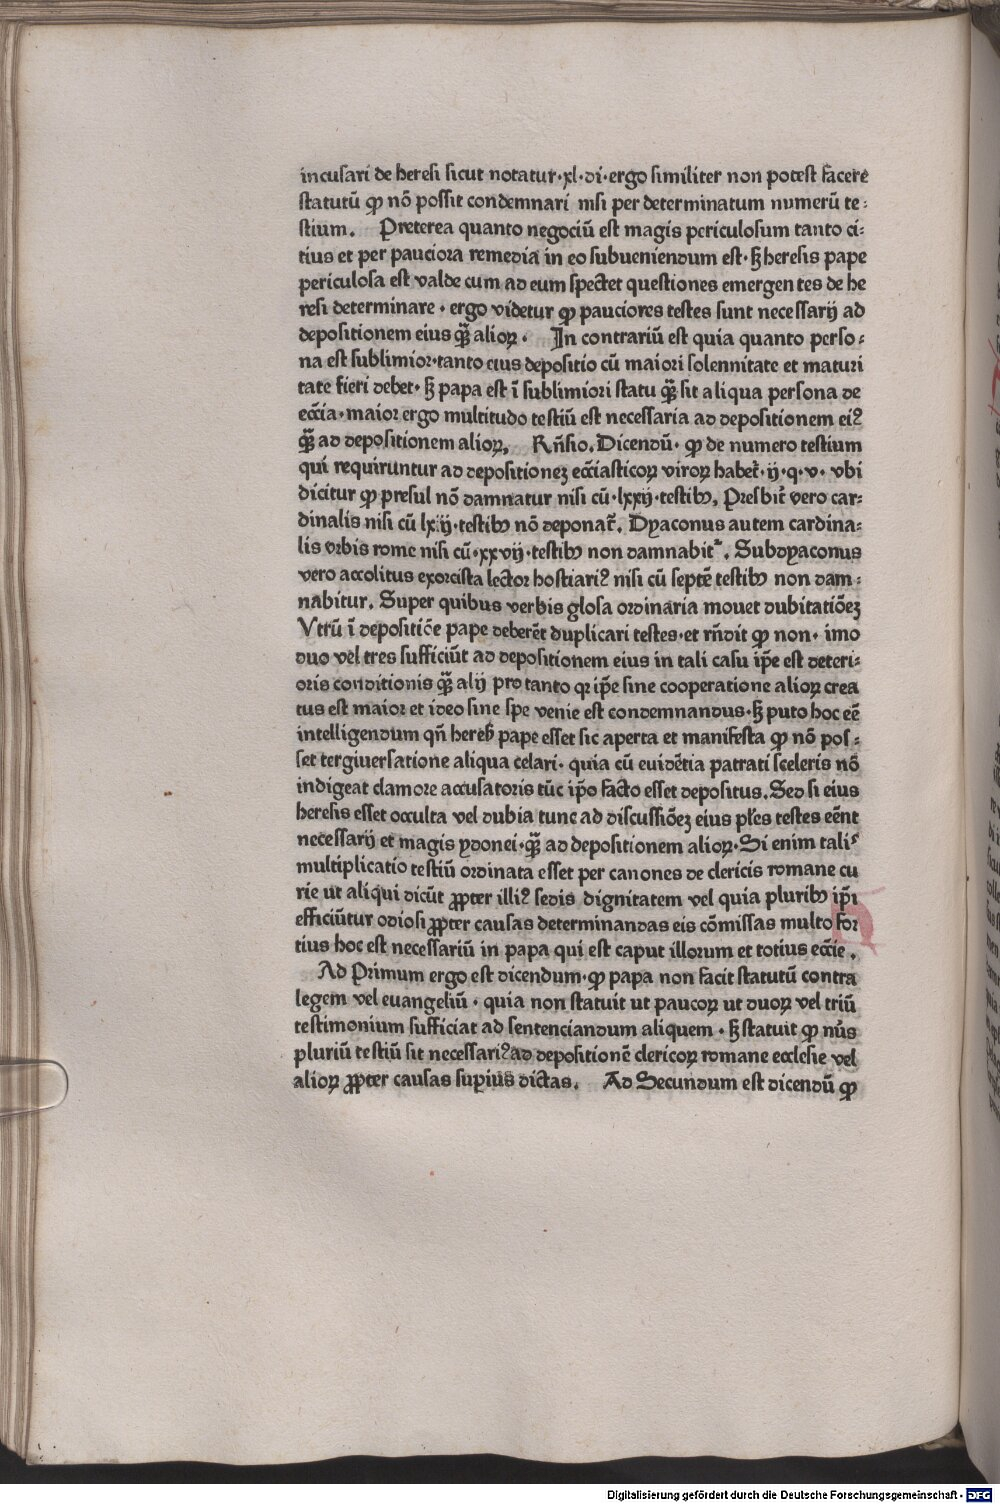 incusari de heresi sicut notatur·xl·di·ergo similiter non potest facere
statutū ꝙ nō possit condemnari nisi per determinatum numerū te⸗
stium. Preterea quanto negociū est magis periculosum tanto ci⸗
tius et per pauciora remedia in eo subueniendum est·ꝫ heresis pape
periculosa est valde cum ad eum spectet questiones emergentes de he
resi determinare · ergo videtur ꝙ pauciores testes sunt necessarij ad
depositionem eius ꝙ̄ alioꝝ · In contrariū est quia quanto perso⸗
na est sublimior·tanto eius depositio cū maiori solennitate et maturi
tate fieri debet·ꝫ papa est ī sublimiori statu ꝙ̄ sit aliqua persona de
ecc̄ia·maior ergo multitudo testiū est necessaria ad depositionem eiꝰ
ꝙ̄ ad depositionem alioꝝ, Rn̄sio. Dicendū· ꝙ de numero testium
qui requiruntur ad depositioneꝫ ecc̄iasticoꝝ viroꝝ habet᷑·ij·q·v· vbi
dicitur ꝙ presul nō damnatur nisi cū·lxxij·testibꝫ, Presbit᷑ vero car⸗
dinalis nisi cū lxiiij·testibꝫ nō deponat᷑. Dyaconus autem cardina⸗
lis vrbis rome nisi cū·xxvij·testibꝫ non damnabit᷑. Subdyaconus
vero accolitus exorcista lector hostiariꝰ nisi cū septē testibꝫ non dam⸗
nabitur. Super quibus verbis glosa ordinaria mouet dubitatiōeꝫ
Vtrū ī depositiōe pape deberēt duplicari testes·et rn̄dit ꝙ non· imo
duo vel tres sufficiūt ad depositionem eius in tali casu ip̄e est deteri⸗
oris conditionis ꝙ̄ alij pro tanto qꝛ ip̄e sine cooperatione alioꝝ crea
tus est maior et ideo sine spe venie est condemnandus·ꝫ puto hoc eē
intelligendum qn̄ heres̄ pape esset sic aperta et manifesta ꝙ nō pos⸗
set tergiuersatione aliqua celari· quia cū euidētia patrati sceleris nō
indigeat clamore accusatoris tūc ip̄o facto esset depositus. Sed si eius
heresis esset occulta vel dubia tunc ad discussiōeꝫ eius pl̄es testes eēnt
necessarij et magis ydonei·ꝙ̄ ad depositionem alioꝝ·Si enim talis
multiplicatio testiū ordinata esset per canones de clericis romane cu
rie ut aliqui dicūt ꝓpter illiꝰ sedis dignitatem vel quia pluribꝫ ip̄i
efficiūtur odiosi ꝓpter causas determinandas eis cōmissas multo for
tius hoc est necessariū in papa qui est caput illorum et totius ecc̄ie .
Ad Primum ergo est dicendum·ꝙ papa non facit statutū contra
legem vel euangeliū · quia non statuit ut paucoꝝ ut duoꝝ vel triū
testimonium sufficiat ad sentenciandum aliquem · ꝫ statuit ꝙ nūs
pluriū testiū sit necessariꝰ ad depositionē clericoꝝ romane ecclesie vel
alioꝝ ꝓpter causas supius dictas. Ad Secundum est dicendū ꝙ
Digitalisierung gefördert durch die Deutsche Forschungsgemeinschaft - DFG